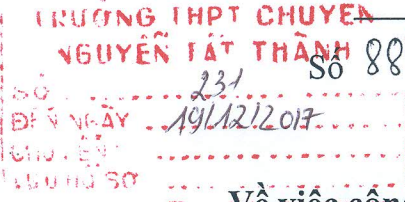 TRƯỜNG THPT CHUYÊN
NGUYỄN TẤT THÀNH
Số 88
SỐ 231
ĐẾN NGÀY 19/12/2017
CHUYỂN
LƯU HỒ SƠ
Về việc côn